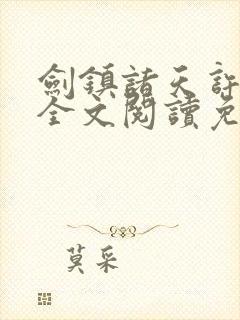 劍鎮諸天許
全文閱讀免
莫采